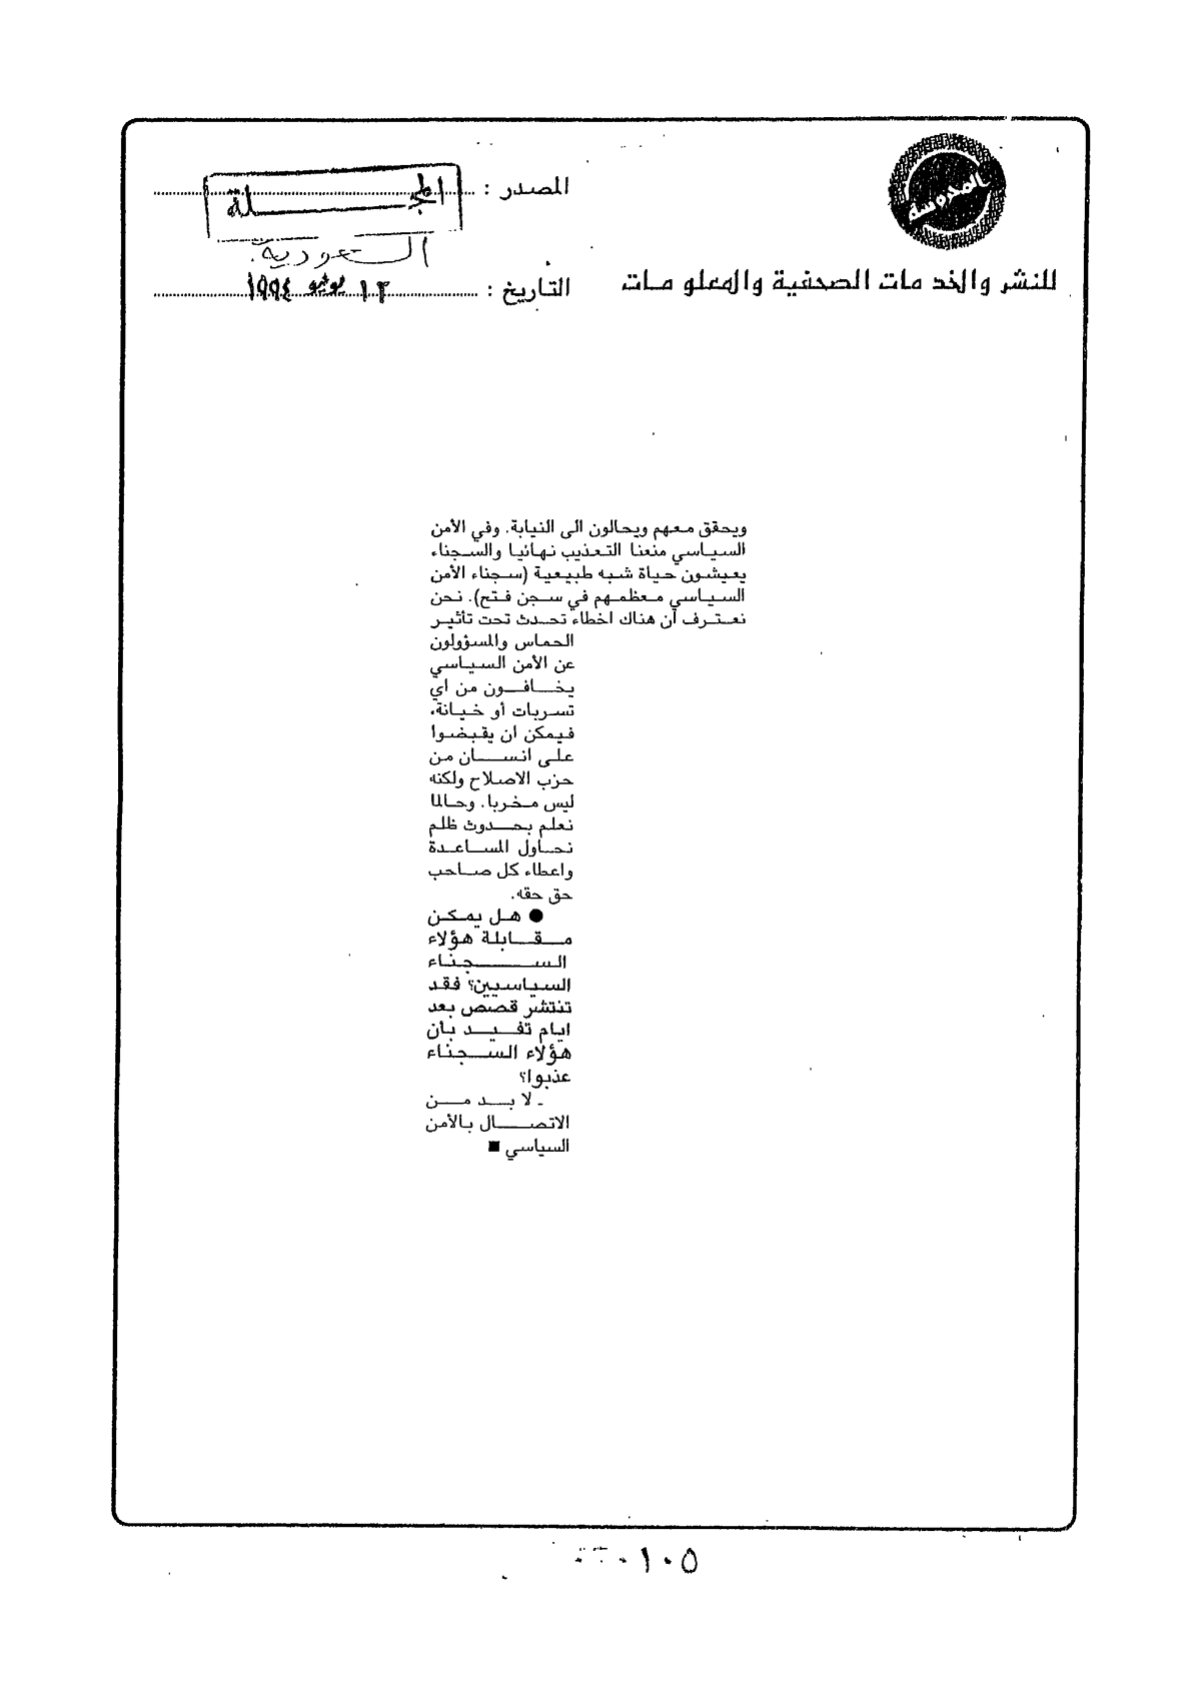 المحروسة
للنشر والخدمات الصحفية والمعلومات
المصدر :
المجلة
السعودية
التاريخ : ١٢ يونيو ١٩٩٤
ويحقق معهم ويحالون الى النيابة. وفي الأمن
السياسي منعنا التعذيب نهائيا والسجناء
يعيشون حياة شبه طبيعية (سجناء الأمن
السياسي معظمهم في سجن فتح). نحن
نعترف أن هناك اخطاء تحدث تحت تأثير
الحماس والمسؤولون
عن الأمن السياسي
يخافون من اي
تسربات أو خيانة،
فيمكن ان يقبضوا
على انسان من
حزب الاصلاح ولكنه
ليس مخربا. وحالما
نعلم بحدوث ظلم
نحاول المساعدة
واعطاء كل صاحب
حق حقه.
● هل يمكن
مقابلة هؤلاء
السجناء
السياسيين؟ فقد
تنتشر قصص بعد
ايام تفيد بان
هؤلاء السجناء
عذبوا؟
ـ لا بد من
الاتصال بالأمن
السياسي ■